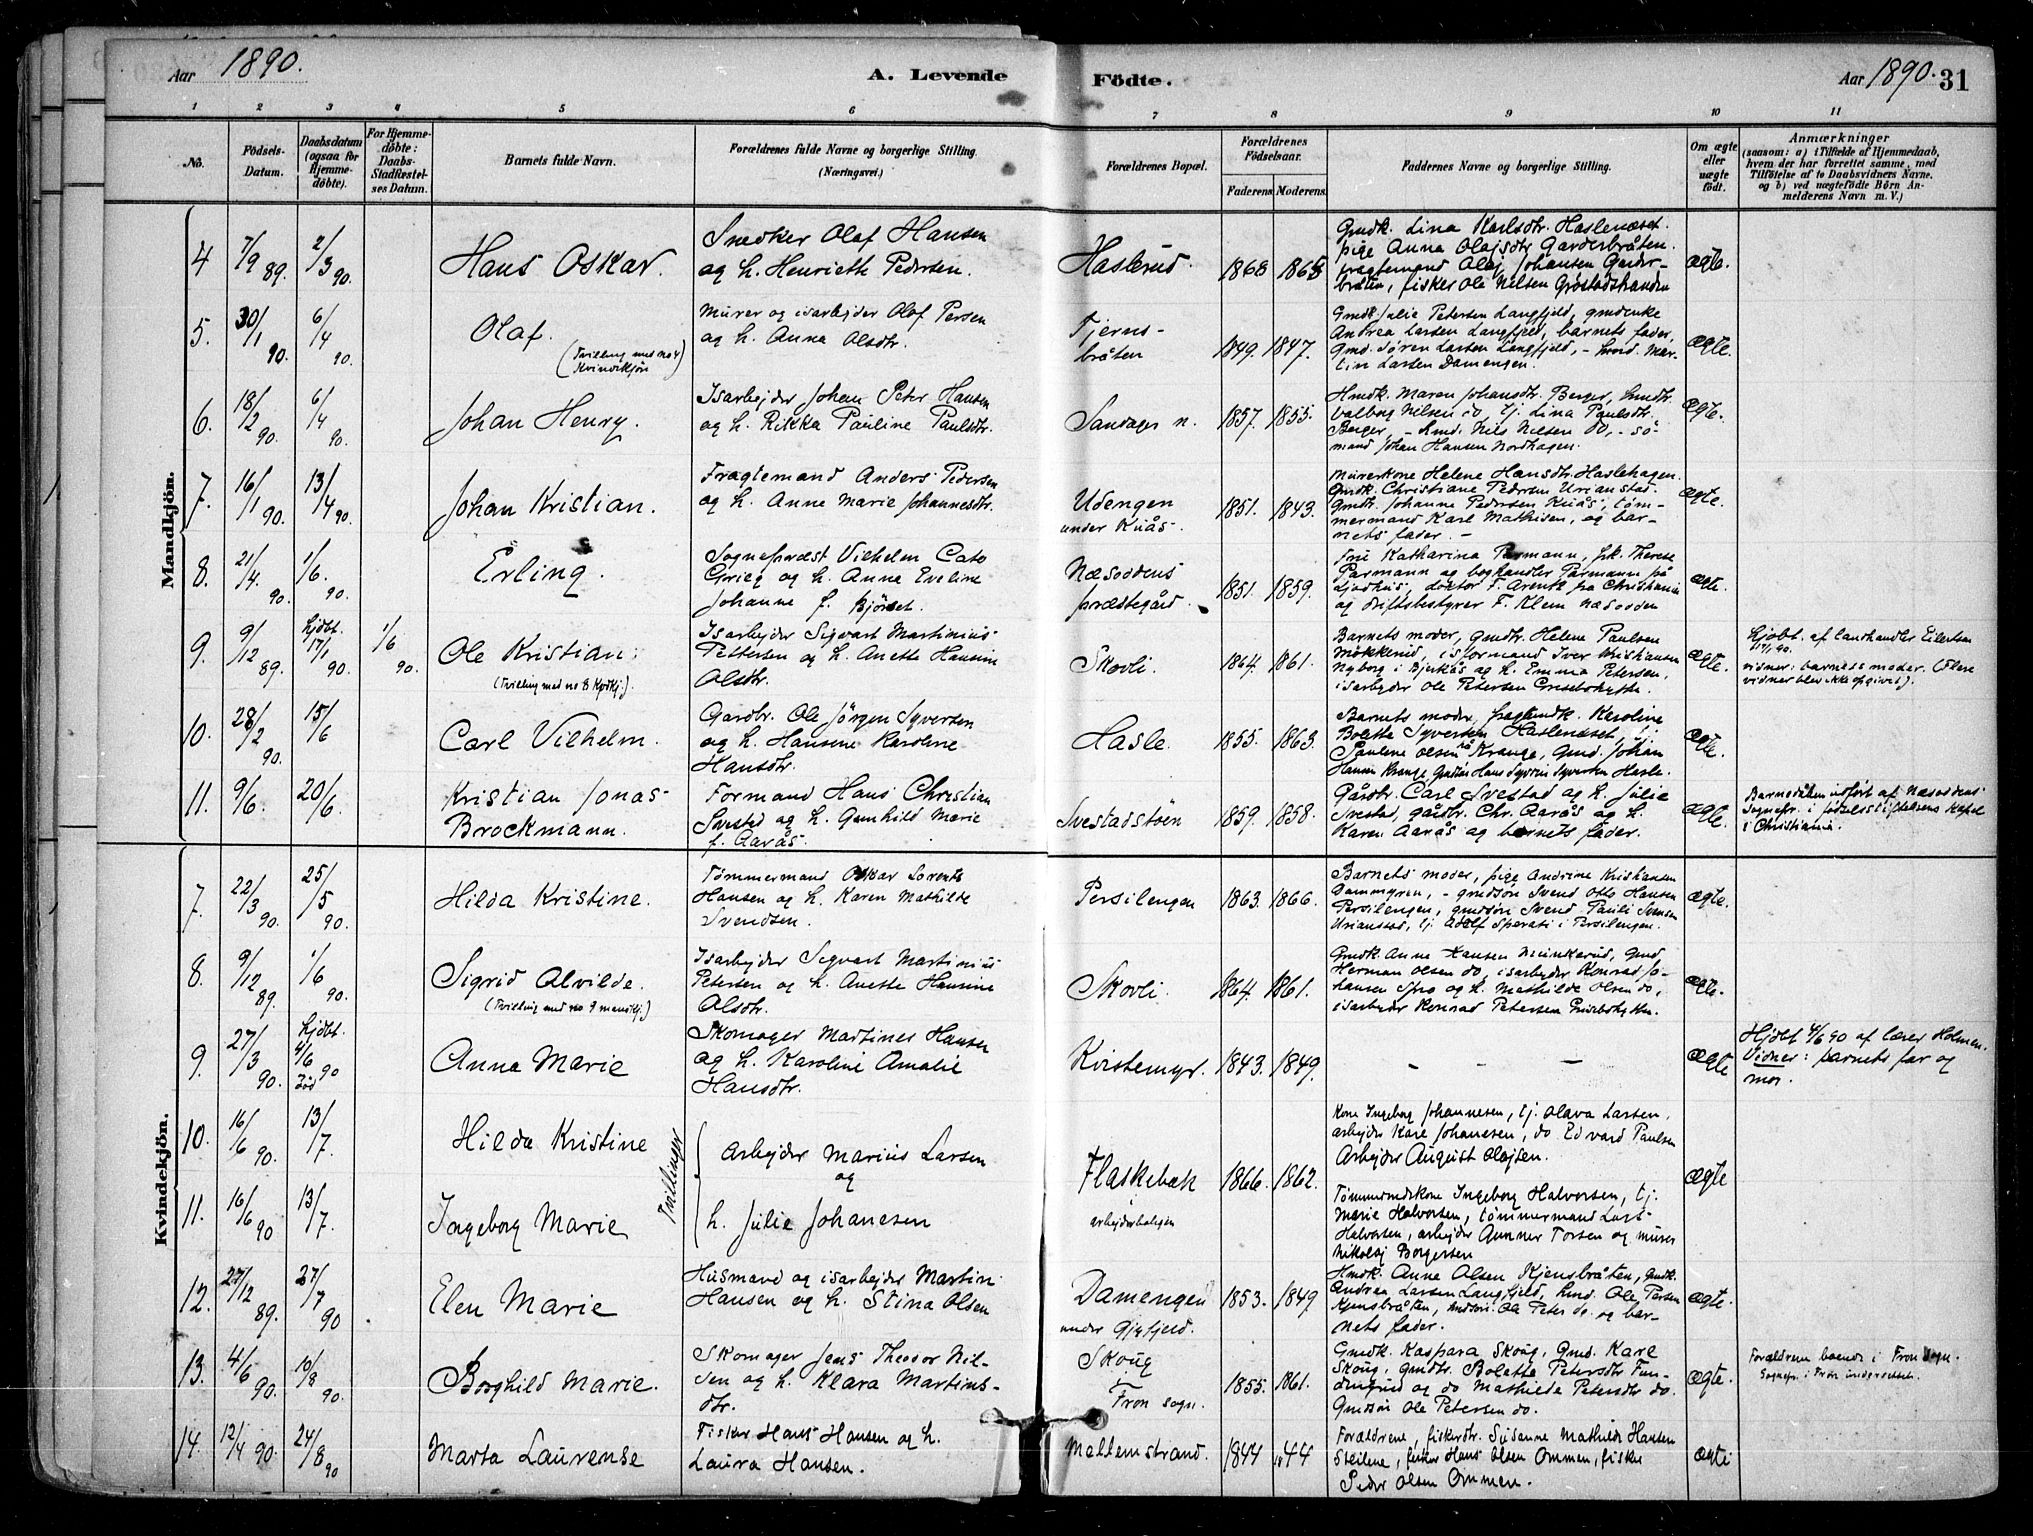 Aar 1890.
A. Levende Födte.
Aar 1890. 31
1 2 3 4 5 6 7 8 9 10 11
No.
Födsels-Datum.
Daabsdatum (ogsaa for Hjemme-döbte).
For Hjemme-döbte: Daabs-Stadfæstel-ses Datum.
Barnets fulde Navn.
Forældrenes fulde Navne og borgerlige Stilling. (Næringsvei.)
Forældrenes Bopæl.
Forældrenes Födselsaar.
Faderens. Moderens.
Faddernes Navne og borgerlige Stilling.
Om ægte eller uægte födt.
Anmærkninger
(saasom: a) i Tilfælde af Hjemmedaab,
hvem der har forrettet samme, med
Tilföielse af to Daabsvidners Navne,
og b) ved uægtefödte Börn An-
melderens Navn m. V.)
Mandkjön.
4 7/9 89. 2/3 90. Hans Oskar.
Snedker Olaf Hansen
og h. Henriette Pedersen.
Haslerud. 1868 1865
Gmdk. Lina Karlsdtr. Haslenæset.
pige Anna Olajsdtr Garderbråten.
fragtemand Olaj Johansen Garder-
bråten, fisker Ole Nilsen
ægte.
5. 30/1 90. 6/4 90. Olaf.
(Tvilling med no 4
Kvindekjön)
Murer og isarbejder Olaf Persen
og h. Anna Olsdtr.
Tjerns-
bråten 1849. 1847.
Gmdk. Julie Petersen Langfjeld, gmdenke
Andrea Larsen Langfjeld, barnets fader,
Gmd. Sören Larsen Langfjeld, - hmd. Mar-
tin Larsen Damengen.
ægte.
6. 18/2 90. 6/4 90. Johan Henry.
Isarbejder Johan Peter Hansen
og h. Rikka Pauline Paulsdtr.
Sandager n. 1857. 1855.
Hmdk. Maren Johansdtr. Berger, hmdtr.
Valborg Nilsen do, tj. Lina Paulsdtr.
Berger, - Hmd. Nils Nilsen do, - sö-
mand Johan Hansen Nordhagen.
ægte.
7. 16/1 90. 13/4 90. Johan Kristian.
Fragtemand Anders Pedersen
og h. Anne Marie Johannesdtr.
Udengen
under Kuås. 1851. 1843.
Murerkone Helene Hansdtr. Haslehagen.
Gmdk. Christiane Pedersen Urianstad.
Gmdtr. Johanne Pedersen Kuås, töm-
mermand Karl Mathisen, og bar-
nets fader. -
ægte.
8. 21/4. 90. 1/6. 90. Erling.
Sogneprest Vilhelm Cato
Grieg og h. Anne Eveline
Johanne f. Kjörset.
Næsoddens
præstegård. 1851. 1859.
Fru Katharina Parmann, frk. Therese
Parmann og boghandler Parmann på
Ljadhus, doktor F. Arentz fra Christiania
og driftsbestyrer F. Klem Næsodden
ægte.
9. 9/12 89. hjdbt. 17/1 90. 1/6 90. Ole Kristian.
(Tvilling med no 8 Kvdkj.)
Isarbejder Sigvart Martinius
Pettersen og h. Anette Hansine
Olsdtr.
Skovli. 1864. 1861.
Barnets moder, gmdtr. Helene Paulsen
Mökkerud, isformand Iver Kristiansen
Nyborg i Bjerkås og h. Emma Petersen,
isarbejder Ole Petersen
ægte.
hjobt. af landhandler Eilertsen
17/1 90.
vidner: barnets moder. (Flere
vidner blev ikke opgivet).
10. 28/2 90. 15/6 Carl Vilhelm.
Gardbr. Ole Jörgen Syversen
og h. Hansine Karoline
Hansdtr.
Hasle. 1855. 1863.
Barnets moder, fragtmdk. Karoline
Bolette Syversen Haslenæset, tj.
Pauline Olsen på Krange, Gmd. Johan
Hansen Krange, Gmdsön Hans Syversen Hasle.
ægte.
11. 9/6. 20/6. Kristian Jonas
Brockmann.
Formand Hans Christian
Svestad og h. Gunhild Marie
f. Aarås.
Svestadstöen 1859. 1858.
Gårdbr. Carl Svestad og h. Julie
Svestad, gårdbr. Chr. Aarås og h.
Karen Aarås og barnets fader.
ægte.
Barnedåben udfört af Næsoddens
Sognepr. i födselsstiftelsens Kapel
i Christiania.
Kvindekjön.
7. 22/3 90. 25/5 90. Hilda Kristine.
Tömmermand Oskar Lorents
Hansen og h. Karen Mathilde
Svendsen.
Persilengen 1863. 1866.
Barnets moder, pige Andrine Kristiansen
Dammyren, - gmdsön Svend Otto Hansen
Persilengen, gmdsön Svend Pauli Svensen
Urianstad, tj. Adolf Sperati i Persilengen.
ægte.
8. 9/12 89. 1/6 90. Sigrid Alvilde.
(Tvilling med no 9 mandkj.)
Isarbejder Sigvart Martinius
Petersen og h. Anette Hansine
Olsdtr.
Skovli. 1864. 1861.
Gmdk. Anne Hansen Munkerud, Gmd.
Herman Olsen do, isarbejder Konrad Jo-
hansen Spro og h. Mathilde Olsen do,
isarbejder Konrad Petersen
ægte.
9. 27/3 90. hjdbt. 4/6 90 Anna Marie
Skomager Martines Hansen
og h. Karoline Amalie
Hansdtr.
Kvistemyr. 1843. 1849.
- - -
ægte
Hjdbt 4/6 90 af lærer Holmen.
Vidner: barnets far og
mor.
10. 16/6 90. 13/7. Hilda Kristine
Tvillinger
Arbejder Marius Larsen
og
h. Julie Johanesen
Flaskebæk
arbejderboligen 1866. 1862.
Kone Ingeborg Johannesen, tj. Olava Larsen,
arbejder Kare Johanesen, do Edvard Paulsen
Arbejder August Olajsen.
ægte
11. 16/6 90 13/7. Ingeborg Marie
Tömmermdskone Ingeborg Halvorsen, tj.
Marie Halvorsen, tömmermand Lars
Halvorsen, arbejder Gunner Torsen og murer
Nikolaj Borgersen
12. 27/12 89. 27/7 90 Elen Marie
Husmand og isarbejder Martin
Hansen og h. Stina Olsen
Damengen
under Gjefjeld. 1853. 1849
Hmdk. Anne Olsen Kjensbråten, Gmdk.
Andrea Larsen Langfjeld, hmd. Ole Persen
Kjensbråten, hmdsön. Ole Peter do. og bar-
nets fader.
ægte.
13. 4/6 90. 10/8 90. Borghild Marie.
Skomager Jens Theodor Nil-
sen og h. Klara Martins-
dtr.
Skoug
Fron sogn. 1855. 1861.
Gmdk. Kaspara Skoug, Gmd. Karl
Skoug, gmdtr. Bolette Petersdtr Fun-
dingrud og do Mathilde Petersdtr do.
Gmdsön Ole Petersen do.
ægte.
Forældrene boende i Fron sogn.
Sognepr. i Fron underrettet.
14. 12/4 90. 24/8 90 Marta Laurense
Fisker Hans Hansen og h.
Laura Hansen.
Mellemstrand. 1844 1844
Forældrene, fiskerdtr. Susanne Mathilde Hansen
Steilene, fisker Hans Olsen Ommen, fisker
Peder Olsen Ommen.
ægte